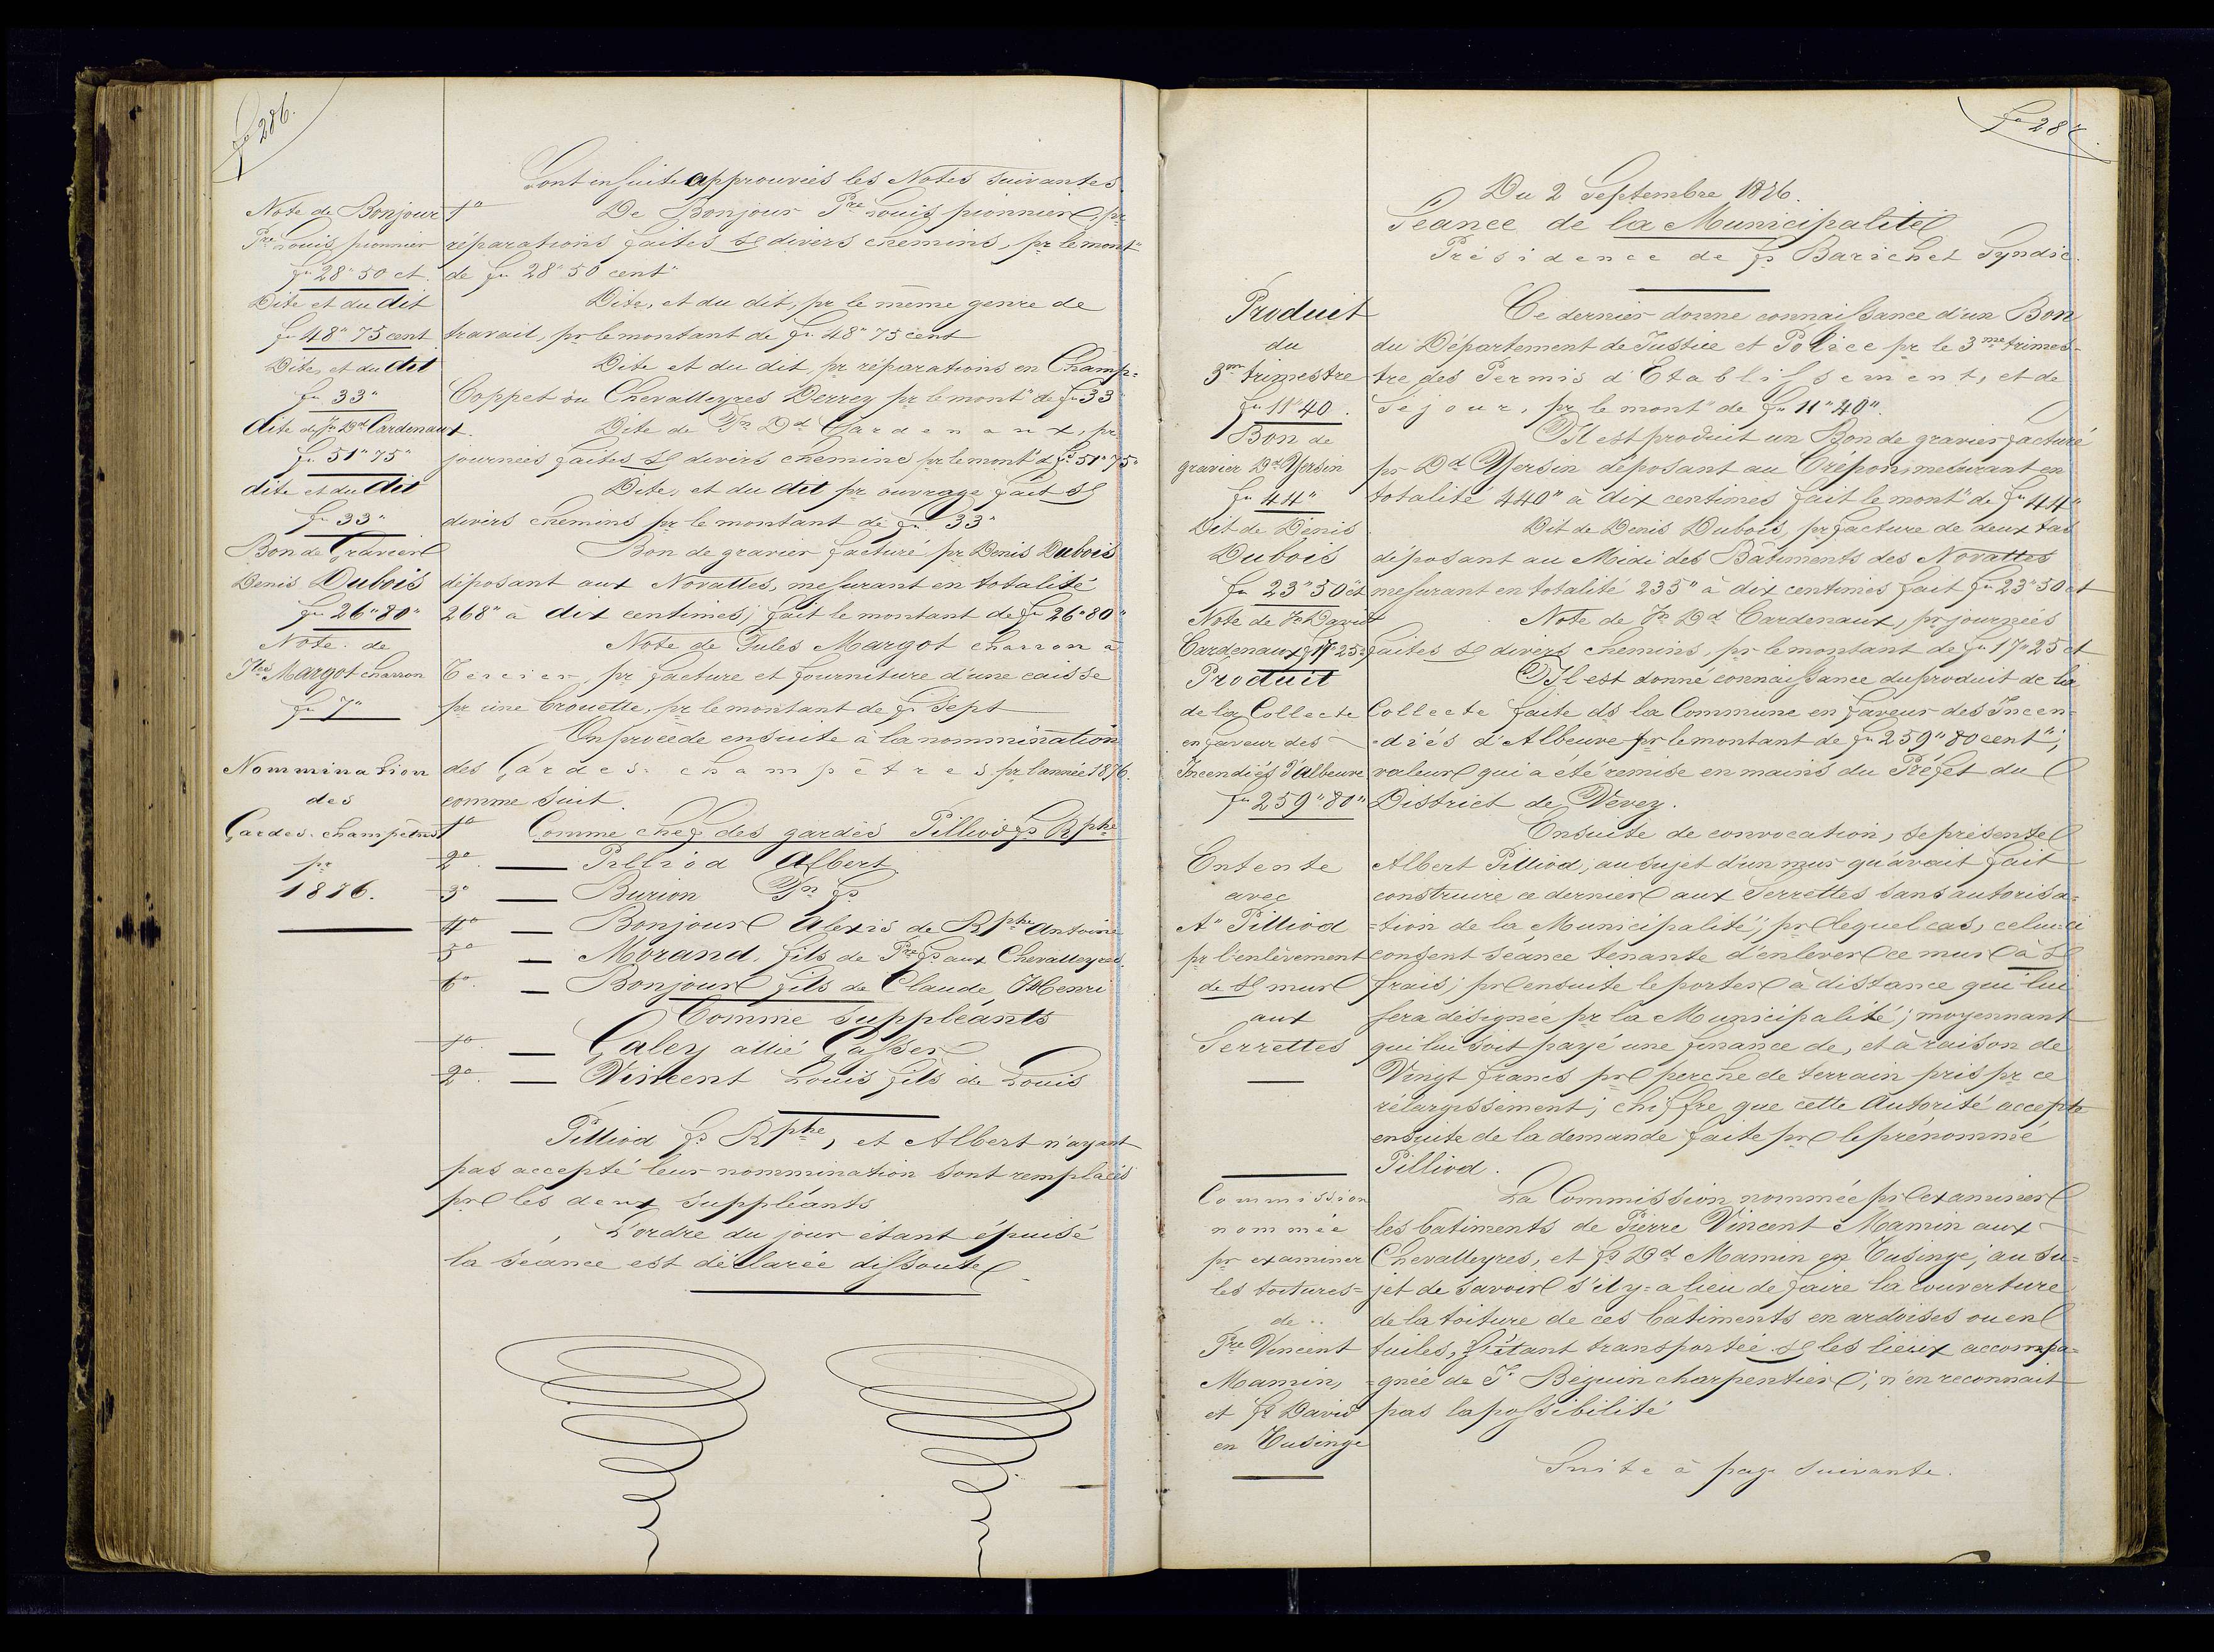 fo 286.
Sont ensuite approuvées les Notes suivantes.
Note de Bonjour
Pre Louis pionnier
fr 28"50 ct
1o De Bonjour Pre Louis pionnier, pr
réparations faites sr divers chemins, pr le mont"
de fr 28"50 cent"
Dite et du dit
fr 48"75 cent
Dite, et du dit, pr le même genre de
travail, pr le montant de fr 48"75 cent
Dite, et du dit
fr 33"
Dite et du dit, pr réparations en Champ-
Coppet ou Chevalleyres Derrey pr le mont" de fr 33
dite de Jn Dd Cardenaux.
fr 51"75"
Dite de Jn Dd Cardenaux, pr
journées faites sr divers chemins pr le mont" d fr 51"75"
dite et du dit
fr 33"
Dite, et du dit pr ouvrage fait sr
divers chemins pr le montant de fr 33"
Bon de Gravier
Denis Dubois
fr 26"80"
Bon de gravier facturé pr Denis Dubois
déposant aux Novalles, mesurant en totalité
268" à dix centimes; fait le montant de fr 26"80"
Note de
Jles Margot charron
fr 7"
Note de Jules Margot charron à
Tercier, pr facture et fourniture d'une caisse
pr une brouette, pr le montant de fr Sept
On procède ensuite à la nommination
Nommination
des
Gardes-champêtres
pr
1876.
des Gardes-champêtres pr l'année 1876.
comme suit.
1o Comme chef des gardes Pilliod fs Rphe
2o. — Pilliod Albert
3o — Burion Jn fs
4o — Bonjour Alexis de Rphe Antoine
5o — Morand, fils de Pre fs aux Chevalleyres.
6o. — Bonjour fils de Claude Henri
Comme suppléants
1o. — Galey allié Gasser
2o. — Vincent Louis fils de Louis
Pilliod fs Rphe, et Albert n'ayant
pas accepté leur nommination sont remplacés
pr les deux suppléants
L'ordre du jour étant épuisé
la séance est déclarée dissoute.
fo 287
Du 2 Septembre 1876.
Séance de la Municipalité
Présidence de fs Barichet Syndic.
Produit
du
3me trimestre
fr 11"40.
Ce dernier donne connaissance d'un Bon
du Département de Justice et Police pr le 3me trimes-
tre des Permis d'Etablissement, et de
Séjour, pr le mont" de fr 11"40".
Bon de
gravier Dd Yersin
fr 44"
Il est produit un Bon de gravier facturé
pr Dd Yersin déposant au Crépon, mesurant en
totalité 440" à dix centimes fait le mont" de fr 44"
Dit de Denis
Dubois
fr 23"50 ct
Dit de Denis Dubois, pr facture de deux tas
déposant au Midi des Bâtiments des Novalles
mesurant en totalité 235" à dix centimes fait fr 23"50 ct
Note de Jn David
Cardenaux fr 17"25"
Note de Jn Dd Cardenaux, pr journées
faites sr divers chemins, pr le montant de fr 17"25 ct
Produit
de la Collecte
en faveur des
Incendiés d'Albeuve
fr 259"80"
Il est donné connaissance du produit de la
Collecte faite ds la Commune en faveur des Incen-
-diés d'Albeuve pr le montant de fr 259"80 cent";
valeur qui a été remise en mains du Préfet du
District de Vevey.
Entente
avec
At Pilliod
pr l'enlèvement
de sr mur
aux
Serrettes
Ensuite de convocation, se présente
Albert Pilliod, au sujet d'un mur qu'avait fait
construire ce dernier aux Serrettes sans autorisa-
-tion de la Municipalité; pr lequel cas, celui-ci
consent séance tenante d'enlever ce mur à sr
frais; pr ensuite le porter à distance qui lui
sera désignée pr la Municipalité; moyennant
qui lui soit payé une finance de, et à raison de
Vingt francs pr perche de terrain pris pr ce
rélargissement; chiffre que cette Autorité accepte
ensuite de la demande faite pr le prénommé
Pilliod.
Commission
nommée
pr examiner
les toitures
de
Pre Vincent
Mamin,
et fs David
en Tusinge
La Commission nommée pr examiner
les bâtiments de Pierre Vincent Mamin aux
Chevalleyres, et fs Dd Mamin en Tusinge; au su-
jet de savoir s'il y-a lieu de faire la couverture
de la toiture de ces bâtiments en ardoises ou en
tuiles, s'étant transportée sr les lieux accompa-
-gnée de Jn Béguin charpentier; n'en reconnait
pas la possibilité
Suite à page suivante.